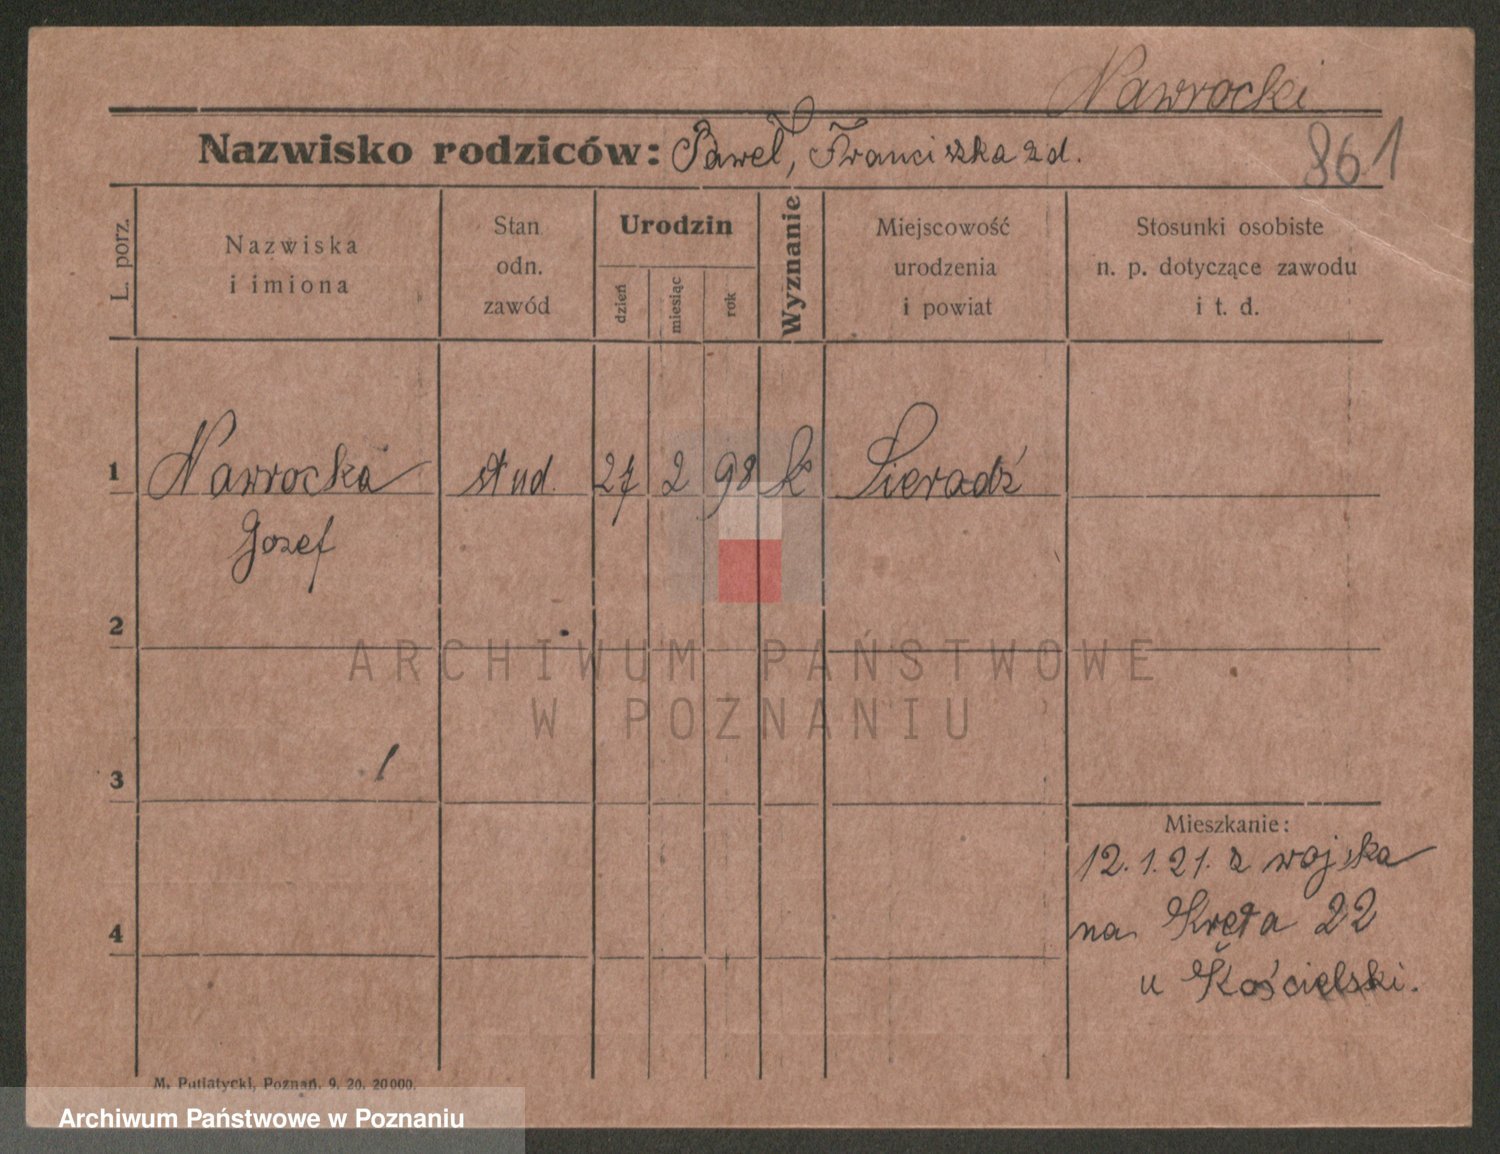 Nawrocki
Nazwisko rodziców: Paweł, Franciszka zd.
861
L. porz.
Nazwiska
i imiona
Stan
odn.
zawód
Urodzin
dzień
miesiąc
rok
Wyznanie
Miejscowość
urodzenia
i powiat
Stosunki osobiste
n. p. dotyczące zawodu
i t. d.
1 Nawrocka stud. 27 2 98 k Sieradź
Jozef
2
ARCHIWUM PAŃSTWOWE
W POZNANIU
3
Mieszkanie:
12.1.21. z wojska
4
na Kręta 22
u Kościelski.
M. Putiatycki, Poznań. 9. 20. 20000.
Archiwum Państwowe w Poznaniu